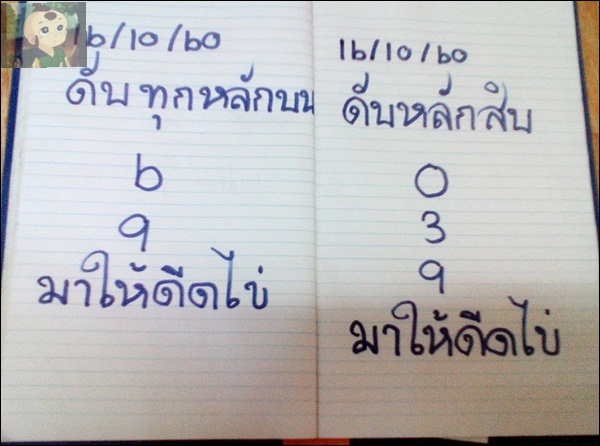 16/10/60
ดับทุกหลักบน
6
9
มาให้ดีดไข่
16/10/60
ดับหลักสิบ
0
3
9
มาให้ดีดไข่